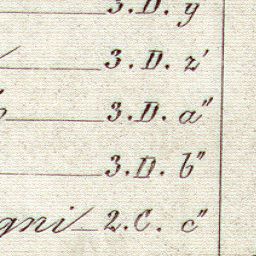 3. D. y
3. D. z'
3. D. a"
3. D. b"
gni 2. C. c"